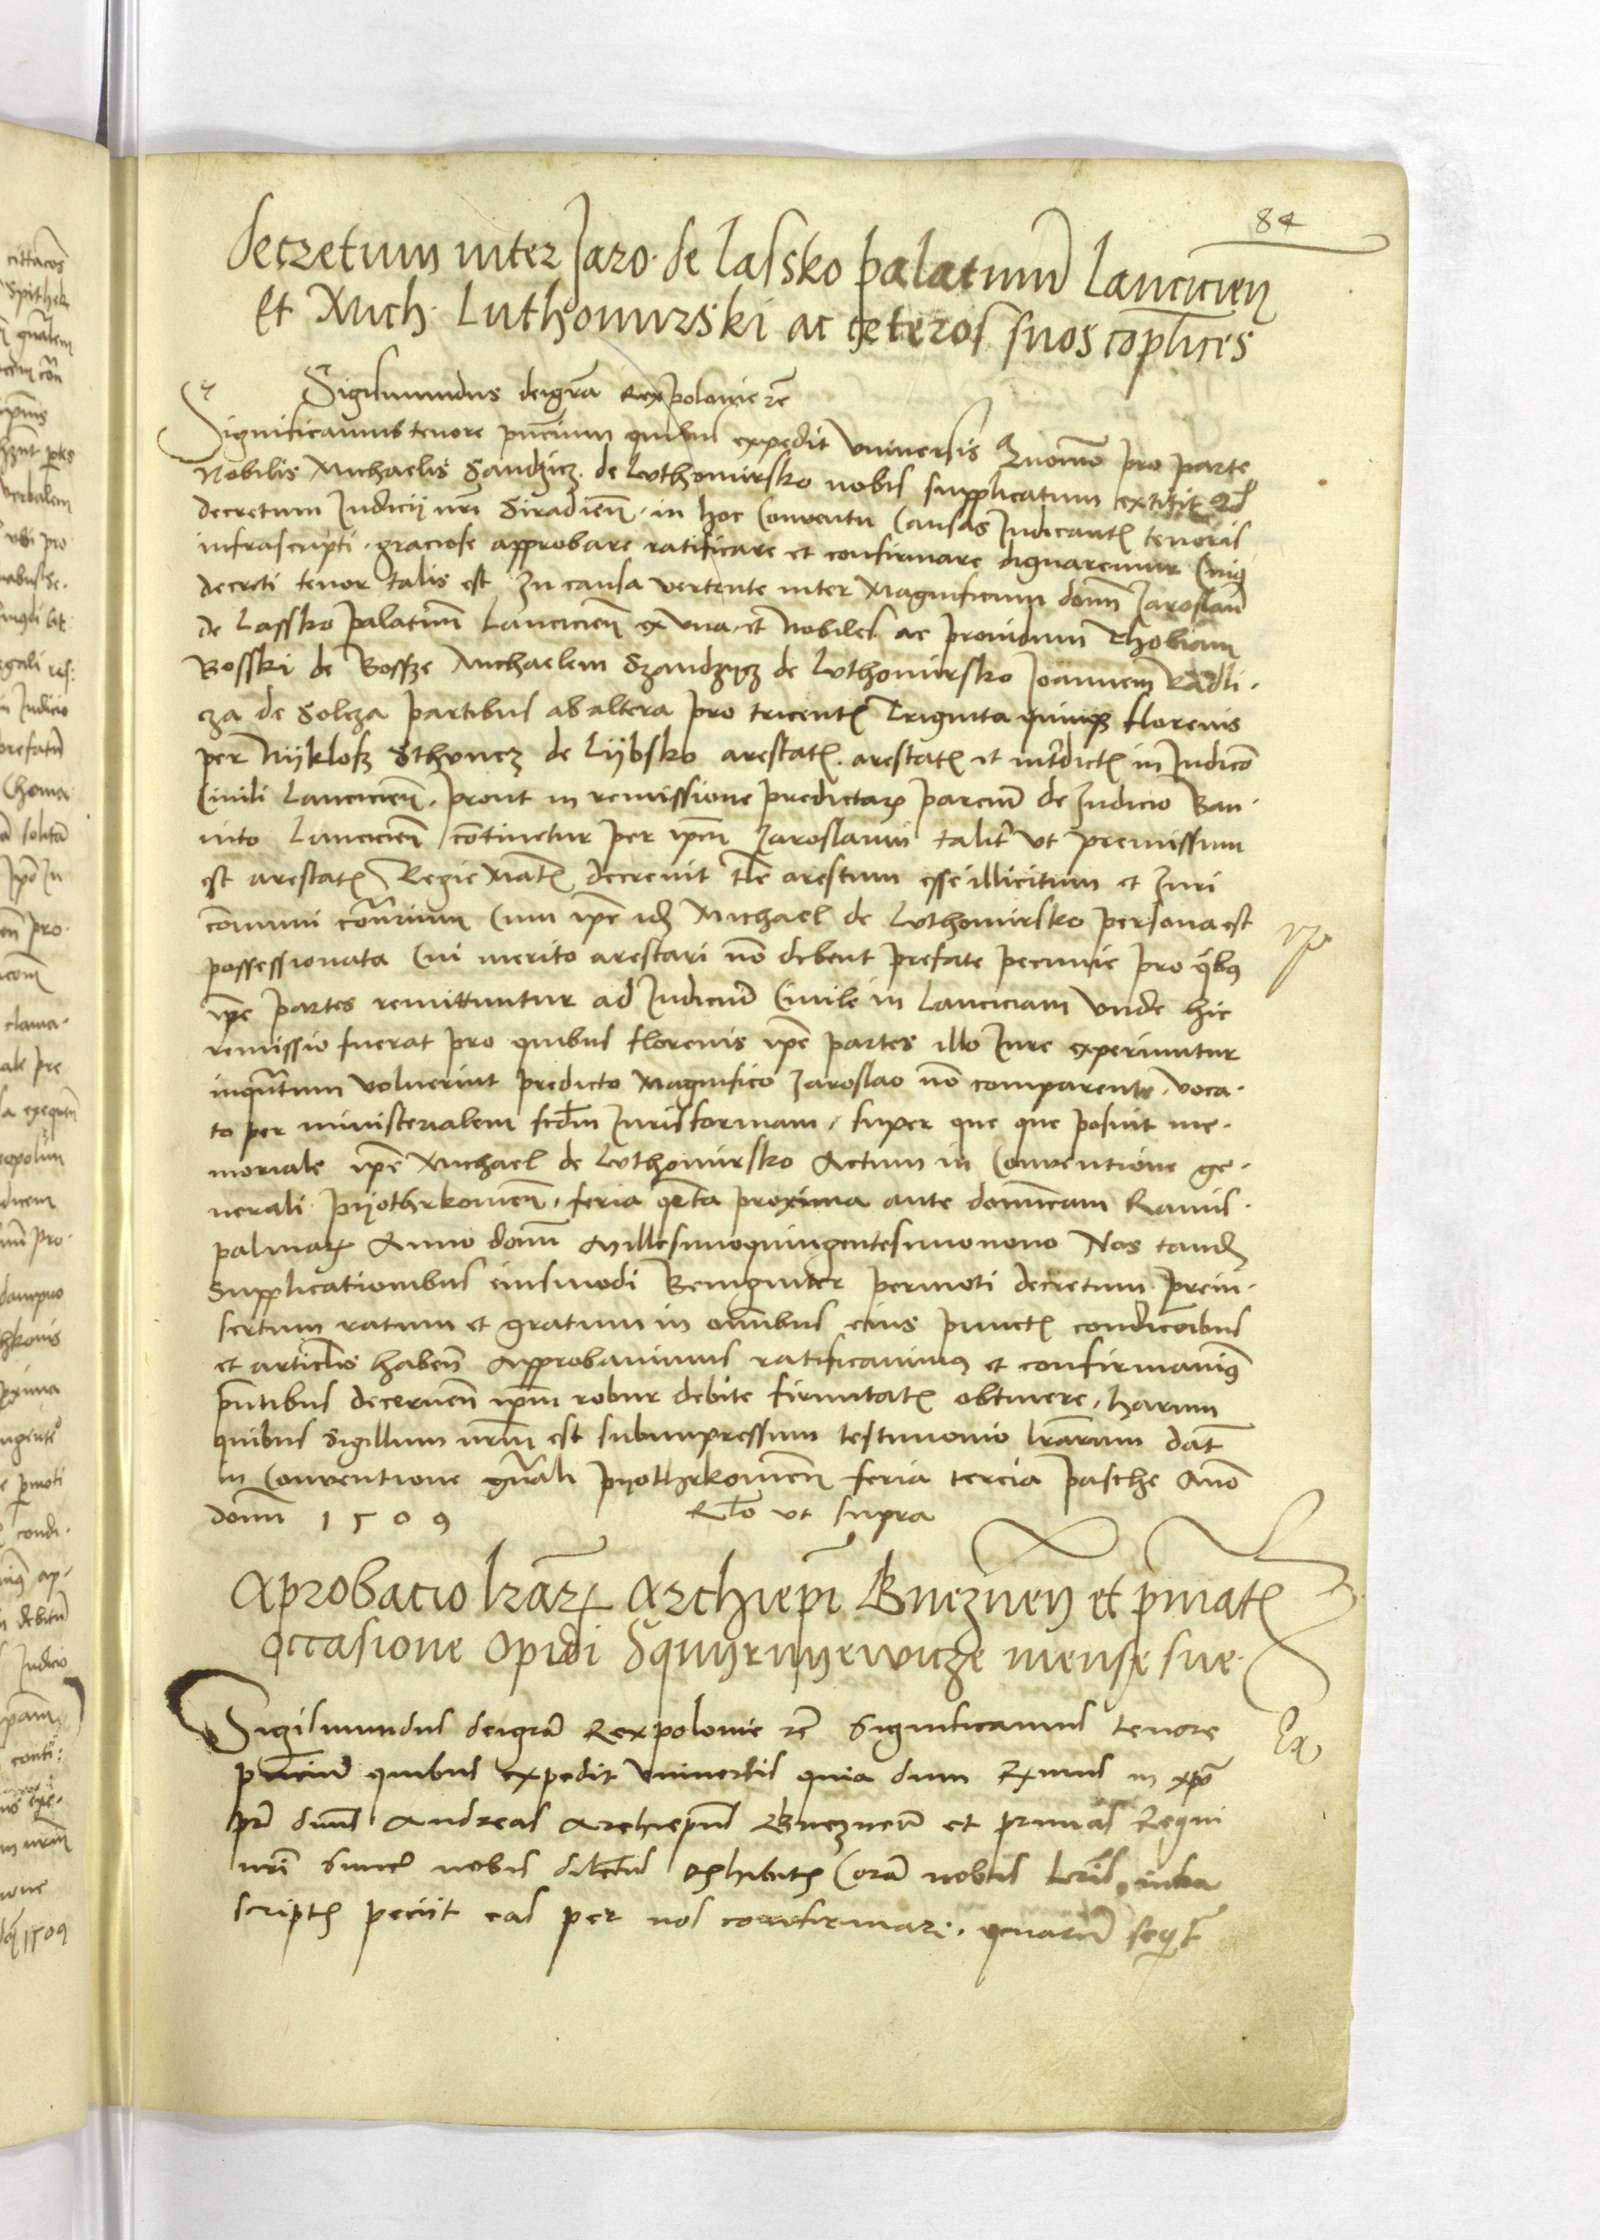 84
decretum inter Jaro. de Lassko palatinũ Lancicien
Et Mich. Luthomirski ac ceteros suos cõplices
Sigismundus dei grã Rex polonie rẽ
Significamus tenore pñcium quibus expedit Universis Quomõ pro parte
Nobilis Michaelis Sandzicz de Luthomirsko nobis supplicatum extitit
decretum Judicij nrĩ Siradieñ. in hoc Conventu Causas Judicantẽ tenoris
infrascripti. graciose approbare ratificare et confirmare dignaremur Cuiꝯ
decreti tenor talis est In causa vertente inter Magnificum domĩ Jaroslaũ
de Lassko palatinũ Lancicieñ ex una et Nobiles ac providum Thobiam
Bosski de Bossze Michaelem Szandzycz de Luthomirsko Joannem Radli.
cza de Solcza partibus ab altera pro tricentꝭ Triginta quinqꝫ florenis
per Nyklosz Sthyncz de Lÿbsko arestatꝭ. arestatꝭ et int̃dictꝭ in Judicõ
Civili Lancicieñ. prout in remissione predictaꝝ parciũ de Judicio Ban.
nito Lancicieñ cõtinetur per ipm̃ Jaroslaum talit̃ ut premissum
est arestatꝭ Regie Matꝭ decrevit tl̃e arestum esse illicitum et Juri
cõmuni cõtrarium Cum ip̃e idẽ Michael de Luthomirsko persona est
possessionata Cui merito arestari nõ debent prefate pecunie pro qibꝯ
ip̃e partes remittuntur ad Judiciũ Civile in Lanciciam Unde hic
remissio fuerat pro quibus florenis ip̃e partes illo Jure experiuntur
inqũtum voluerint predicto Magnifico Jaroslao nõ comparente. voca.
to per ministerialem scd̃m Juris formam, super que que posuit me.
moriale ip̃e Michael de Luthomirsko Actum in Conventione ge.
nerali pÿothrkovieñ. feria qr̃ta proxima ante domĩcam Ramis.
palmaꝝ Anno domĩ Millesimoquingentesimonono Nos tandẽ
Supplicationibus eiusmodi Benigniter permoti decretum prein.
sertum ratum et gratum in omĩbus eius punctꝭ condicõibus
et articl̃is habeñ Approbavimus ratificavimus et confirmavimꝯ
pñtibus decerneñ ip̃m robur debite firmitatꝭ obtinere, harum
quibus Sigillum nrm̃ est subimpressum testimonio lr̃arum dat̃
in Conventione gñrali pÿothrkovieñ feria tercia pasche Añõ
domĩ 1509 Rl̃o ut supra
Aprobacio lr̃aꝝ Archiep̃i Gneznen et p̃matꝭ
occasione opidi Squyrnyewicze mense sue.
Sigismundus dei grã Rex polonie rẽ Significamus tenore
pñciũ quibus expedit Universis quia dum Rx̃mus in xp̃o
pr̃ dñus Andreas Archiep̃us Gnezneñ et primas Regni
nrĩ Sincẽ nobis dilectus exhibitꝭ Corã nobis lr̃is infra
scriptꝭ peciit eas per nos confirmari. quarũ seqt̃